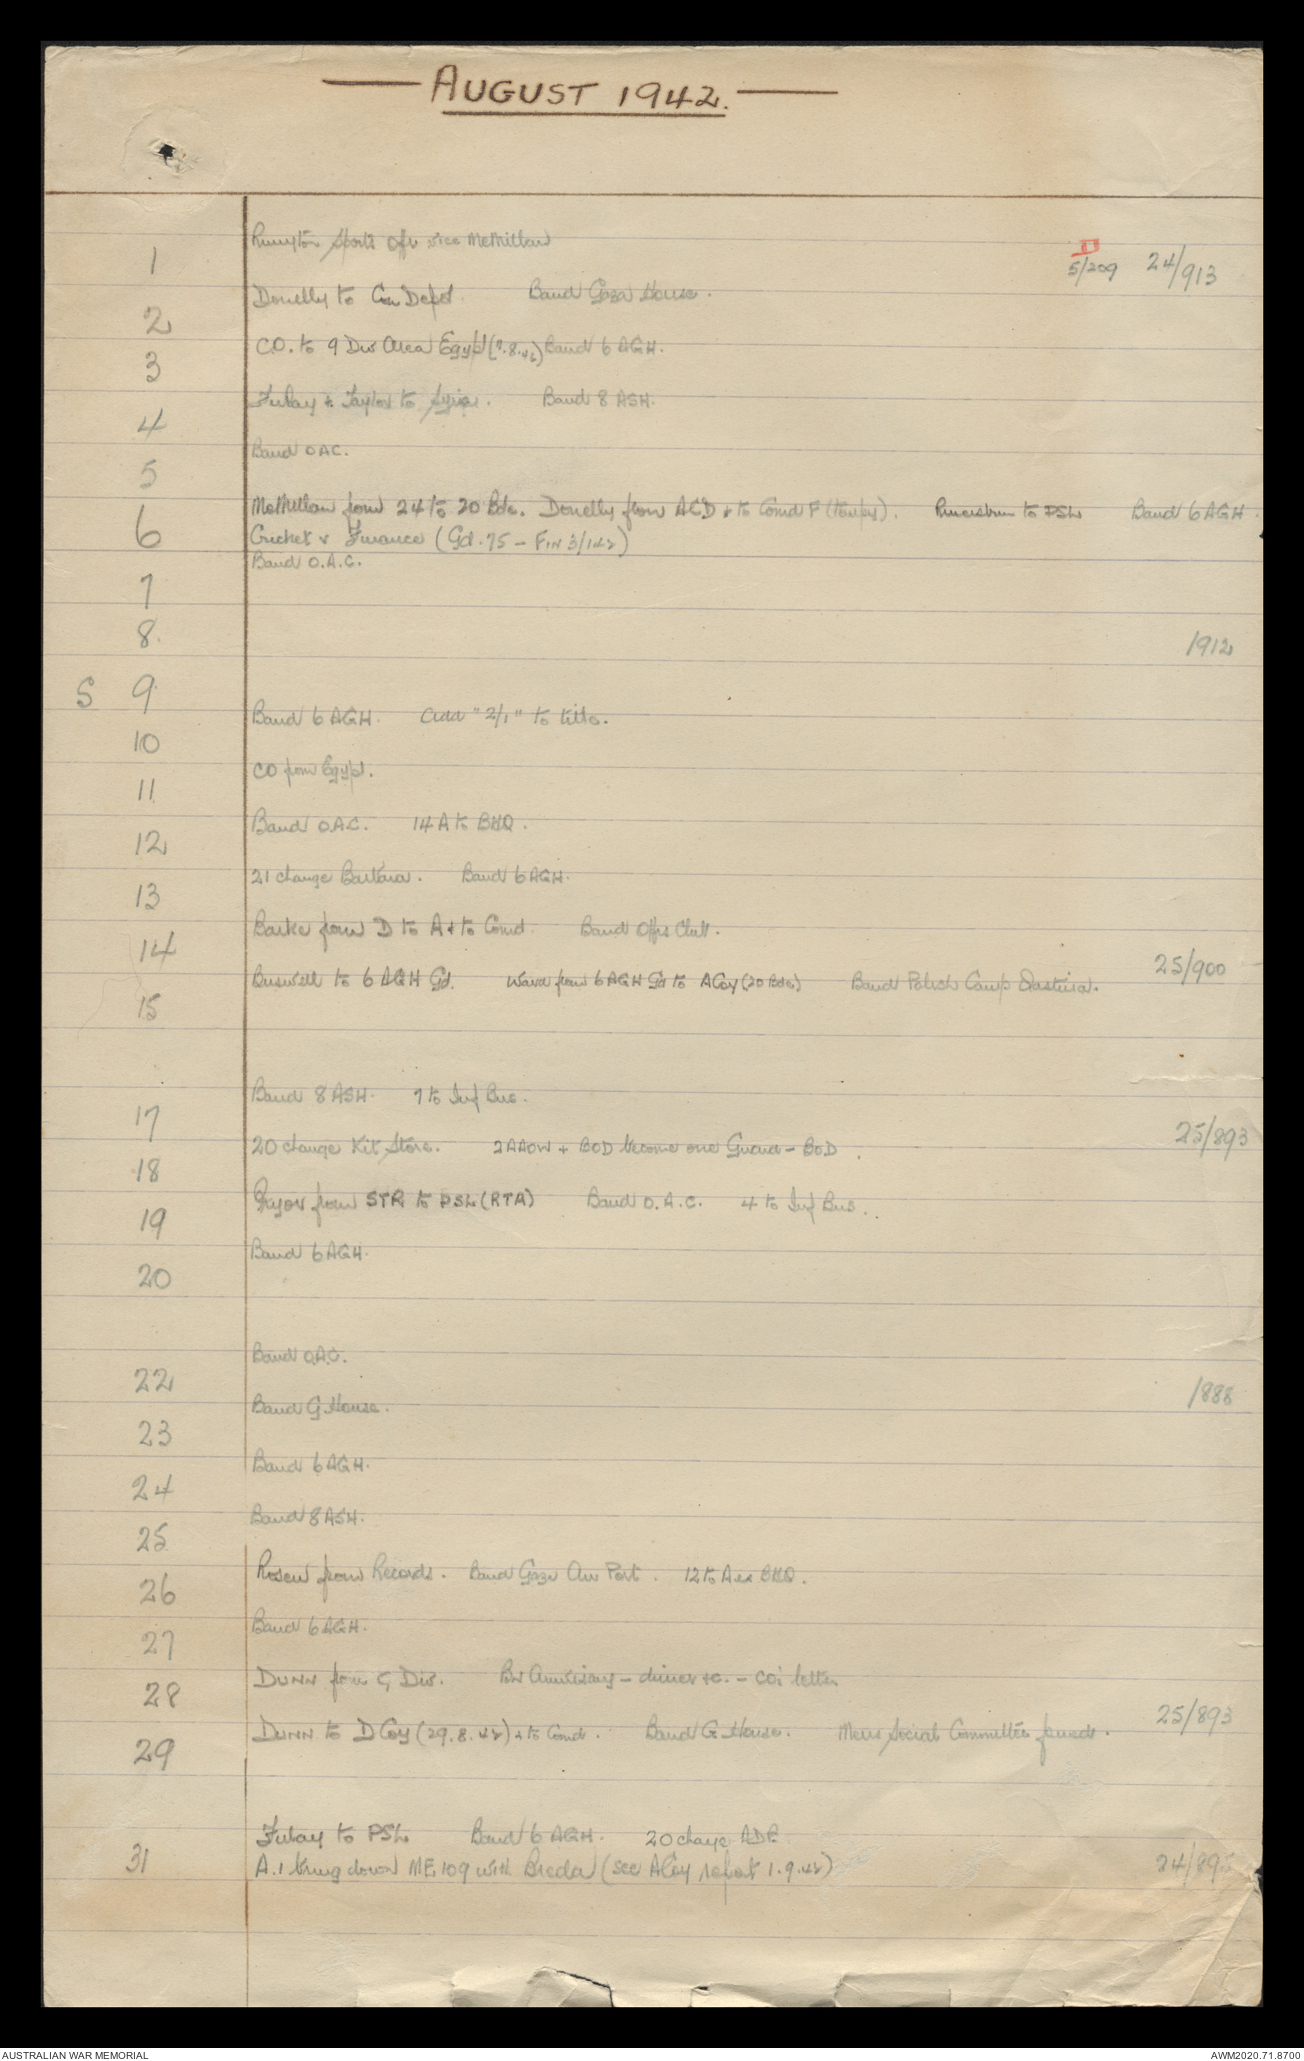 AUGUST 1942.
1 Sports Offr vice McMillan 5/209 24/913
2 Donelly to Con Depot. Band Gaza House.
3 C.O. to 9 Div Area Egypt (7.8.42) Band 6 AGH.
4 & Taylor to Syria. Band 8 ASH.
5 Band OAC.
6 McMillan from 24 to 20 Bde. Donelly from ACD & to Comd F (temp). to PSL Band 6 AGH.
Cricket & Finance (Gd. 75 - FIN 3/142)
7 Band O.A.C.
8 1912
S 9
10 Band 6 AGH. Add "2/1" to title.
11 CO from Egypt.
12 Band O.A.C. 14 A to BHQ.
13 21 change Barbara. Band 6 AGH.
14 Barke from D to A & to Comd. Band Offrs Club.
15 Buswell to 6 AGH Gd. Ward from 6 AGH Gd to A Coy (20 Bde) Band Polish Camp Qastina. 25/900
17 Band 8 ASH. 7 to Inf Bns.
18 20 change Kit Store. 2AAOW + BOD become one Guard - BOD. 25/893
19 Pryor from STR to PSL (RTA) Band O.A.C. 4 to Inf Bns.
20 Band 6 AGH.
22 Band OAC.
23 Band G House. /888
24 Band 6 AGH.
25 Band 8 ASH.
26 Rosen from Records. Band Gaza Air Port. 12 to A ex BHQ.
27 Band 6 AGH.
28 DUNN from 9 Div. Bn Anniversary - dinner &c. - CO's letter
29 DUNN to D Coy (29.8.42) & to Comd. Band G. House. Mens Social Committee formed. 25/893
31 to PSL Band 6 AGH. 20 change ADR
A.1 bring down ME 109 with Breda (see A Coy report 1.9.42) 24/895
AUSTRALIAN WAR MEMORIAL
AWM2020.71.8700